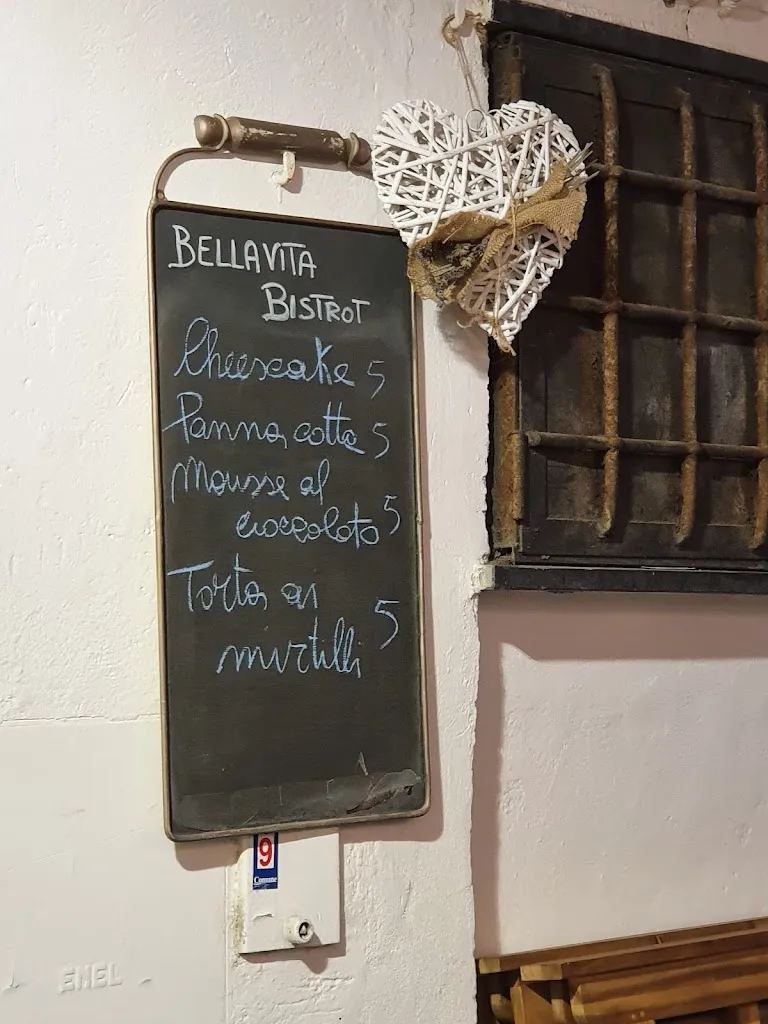 BELLAVITA
BISTROT
Cheescake 5
Panna cotta 5
Mousse al
cioccolato 5
Torta ai
mirtilli 5
9
Comune
ENEL